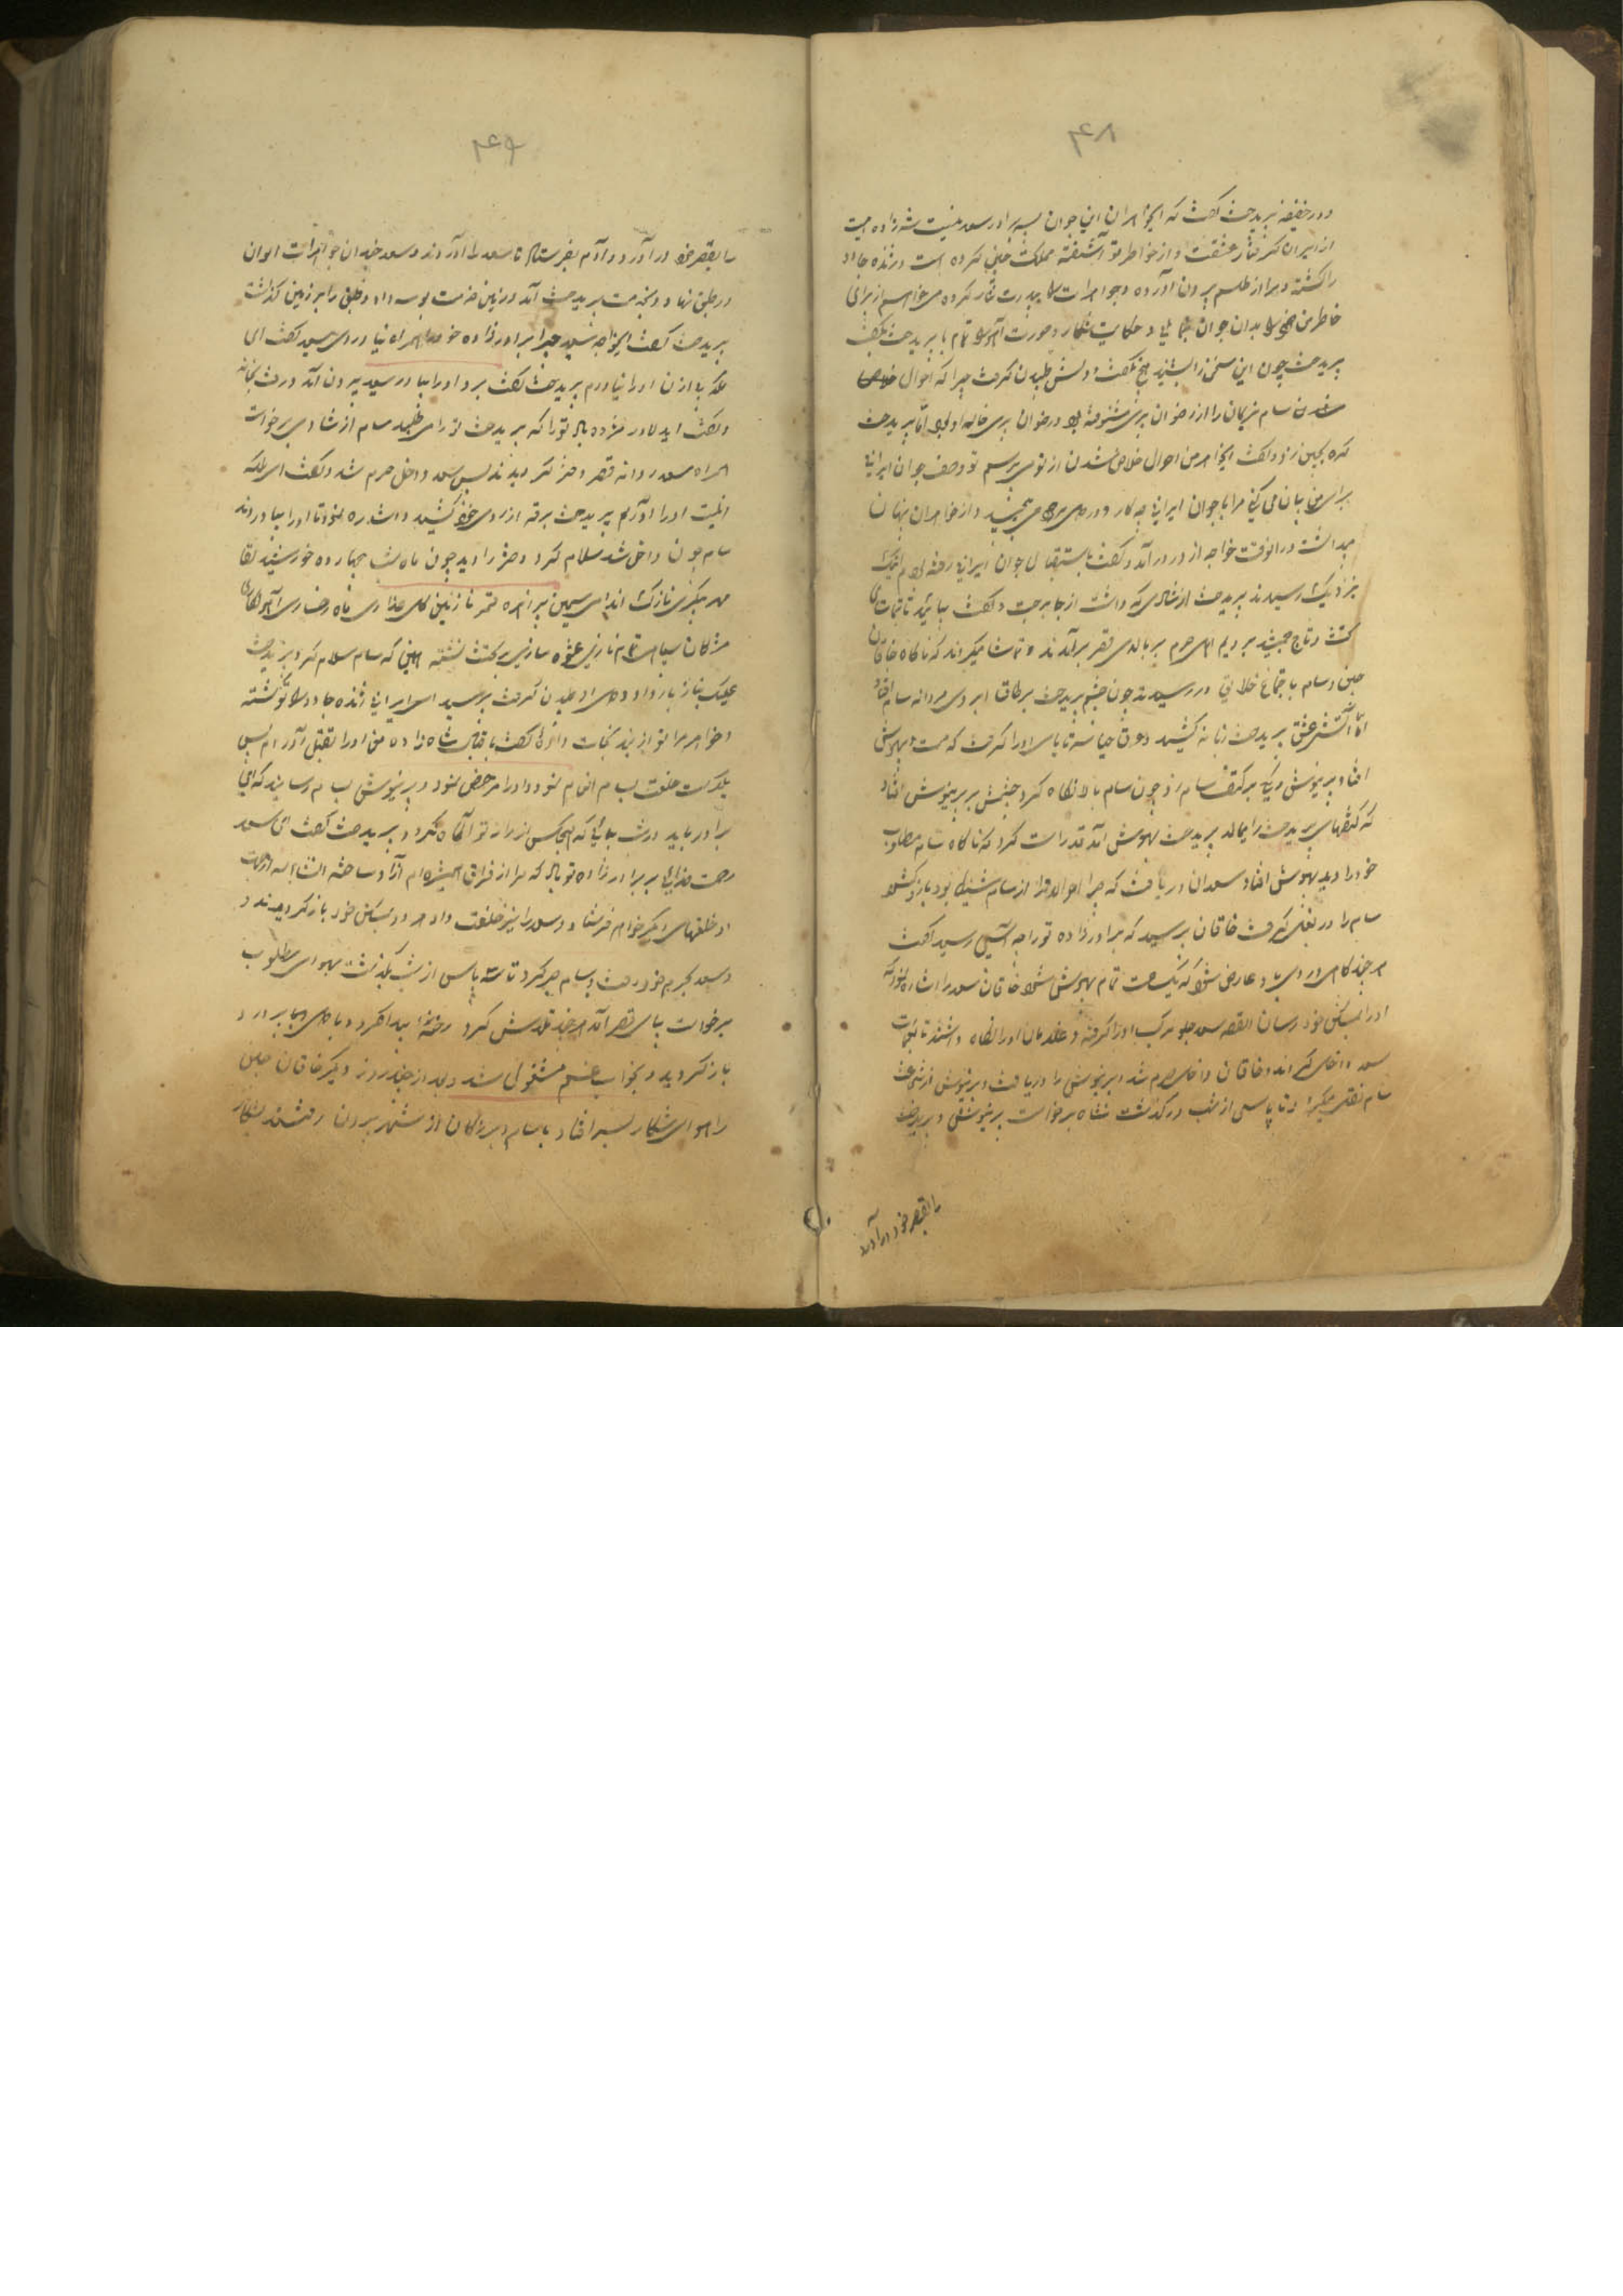 ۴۴۸
و در خفیه پریدخت گفت که ایخواهران این جوان پسر برادر سعد نیست شهزاده ایست
از ایران گرفتار عشقت و از خواطر تو آشفته مملکت چین کرده است و ژنده جادو
را کشته و مرا از طلسم بیرون آورده و جواهرات را بپدرت نثار کرده میخواهم از برای
خاطر من خود را بدان جوان بنمائی و حکایت شکار و صورت آهو را تمام با پریدخت بگفت
پریدخت چون این سخن را بشنید هیچ نگفت و دلش طپیدن گرفت چرا که احوال خلاص
شدن سام نریمان را از رضوان پری شنوفته بود و رضوان پری خاله او بود اما پریدخت
گره بجبین زد و گفت ایخواهر من احوال خلاص شدن از تو می پرسم تو وصف جوان ایرانی
برای من بیان می کنی مرا با جوان ایرانی چه کار و در دل مهر می جنبید و از خواهران پنهان
میداشت در انوقت خواجه از در در آمد و گفت باستقبال جوان ایرانی رفته بودم اینک
نزدیک رسیدند پریدخت از شادی که داشت از جا برجست و گفت بیائید تا تماشای
تخت و تاج جمشید برویم اهل حرم بر بالای قصر برآمدند و تماشا میکردند که ناگاه خاقان
چین و سام با جماعت خلایق در رسیدند چون چشم پریدخت بر طاق ابروی مردانه سام افتاد
آتش عشق پریدخت زبانه کشید و عرق حیا سر تا پای او را گرفت که مست و بیهوش
افتاد و پرینوش تکیه بر کتف سام زد چون سام بالا نگاه کرد چشمش بر پرینوش افتاد
که کتفهای پریدخت را میمالد پریدخت بهوش آمد قد راست کرد که ناگاه سام مطلوب
خود را دید بیهوش افتاد سعدان دریافت که چرا احوالات از سام شنیده بود بازو گشود
سام را در بغل گرفت خاقان پرسید که برادرزاده تو را چه آسیب رسید گفت
هر چند گاهی او را بادی عارض شود که یک ساعت تمام بیهوش شود خاقان سعد را اشاره نمود که
او را بمسکن خود رسان القصه سعد جلو مرکب او را گرفته و غلامان او را نگاه داشتند تا بخانه
سعد داخل گردانید و خاقان داخل حرم شد و پرینوش را دریافت و پرینوش از شجاعت
سام نقل میکرد تا پاسی از شب درگذشت شاه برخواست پرینوش و پریدخت
را بقصر خود در آورد
۴۴۹
را بقصر خود در آورد و آدم بفرستاد تا سعد را آوردند و سعد خندان جواهرات الوان
در طبق نهاد و بخدمت پریدخت آمد و زمین خدمت بوسه داد و طبق را بر زمین گذاشت
پریدخت گفت ایخواجه سعید چرا برادرزاده خود را همراه نیاوردی سعید گفت ای
ملکه بی اذن او را نیاوردم پریدخت گفت برو او را بیاور سعید بیرون آمد و رفت بخانه
و گفت ایدلاور مژده باد تو را که پریدخت تو را می طلبد سام از شادی برخواست
همراه سعد روانه قصر دختر گردیدند پس سعد داخل حرم شد و گفت ای ملکه
اینست او را آوردم پریدخت برقه از روی خود کشید و اشاره نمود تا او را بیاوردند
سام چون داخل شد سلام کرد دختر را دید چون ماه شب چهارده خورشید لقا
مه پیکری نازک اندامی سیمین بر زهره قمر نازنین گل عذاری ماه رخساری آهو نگاهی
مژگان سیاهی تمام نازی عشوه سازی بر تخت نشسته همین که سام سلام کرد پریدخت
علیک بناز باز داد و دل او طپیدن گرفت پرسید ای ایرانی ژنده جادو را تو کشته
و خواهر مرا تو از بند نجات دادی گفت باقبال شاه زاده من او را بقتل آوردم پس
یکدست خلعت بسام انعام نمود و او را مرخص نمود و پرینوش بسام رسانید که ای
برادر باید درشب بیائی که هیچکس از راز تو آگاه نگردد پریدخت گفت ای سعد
رحمت خدای بر برادرزاده تو باد که مرا از فراق همشیره ام آزاد ساخته انشاءالله از جهت
او خلعتهای دیگر خواهم فرستاد و سعد را نیز خلعت داد هر دو بمسکن خود باز گردیدند و
و سعد بحرم خود رفت و سام صبر کرد تا سه پاس از شب بگذشت بهوای مطلوب
برخواست بپای قصر آمد هر چند تلاش کرد رخنه پیدا نکرد و با دل پر درد
باز گردید و بخواب غم مشغول شد و بعد از چند روز دیگر خاقان چین
را هوای شکار بسر افتاد با سام و بزرگان از شهر بیرون رفتند بشکار